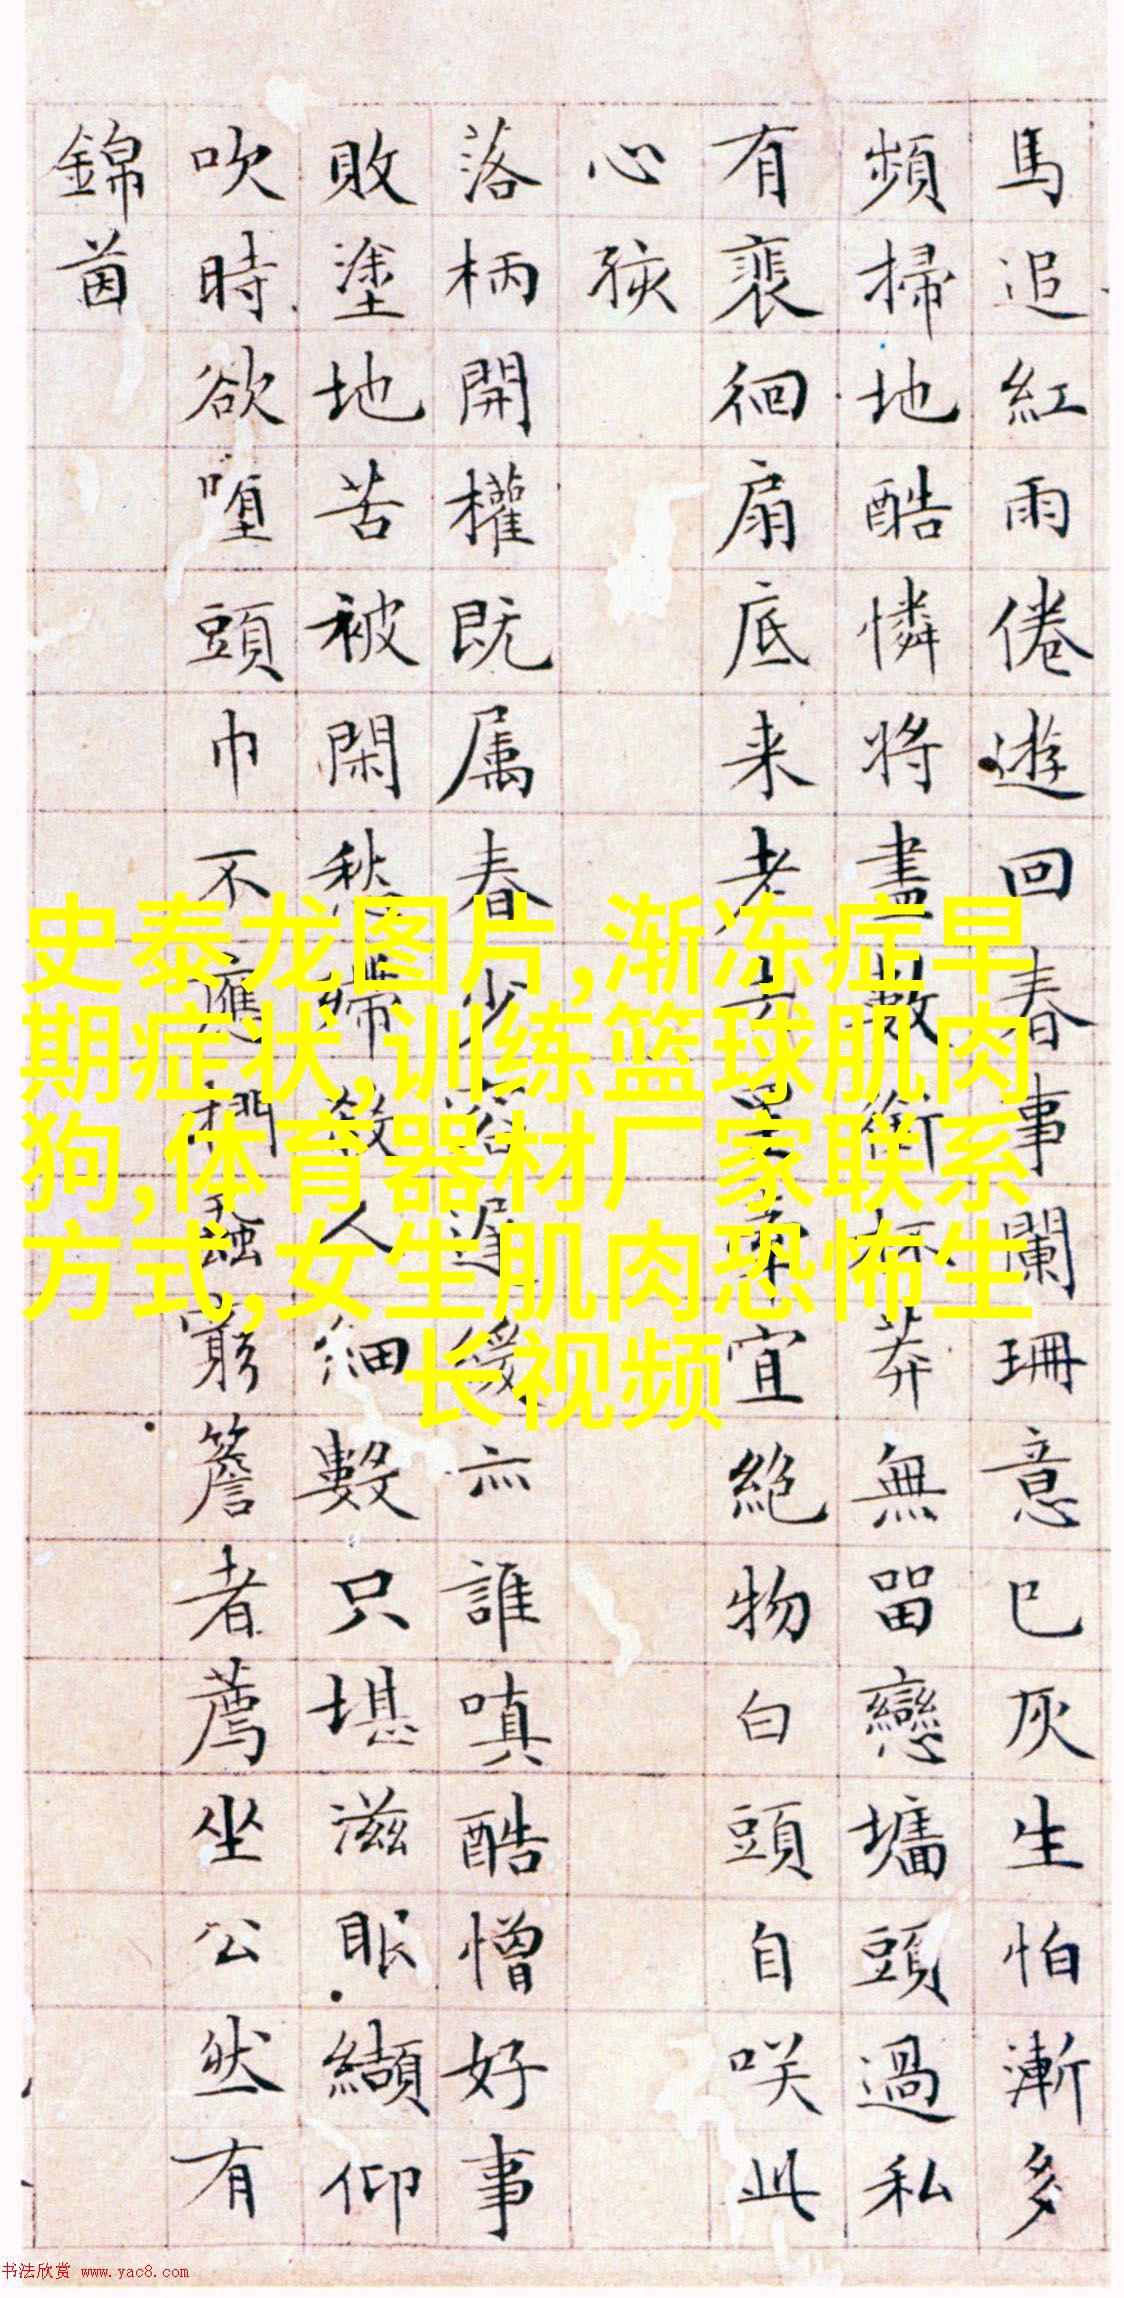 馬追紅雨倦遊回春事闌珊意已灰生怕漸多
頻掃地酷憐將盡數銜杯莽無留戀墻頭過私
有裴徊扇底来老去 宜絶物白頭自咲此
心孩
落柄開權既属春少 遲緩亦誰嗔酷憎好事
敗塗地苦被閑愁 殺人細數只堪滋眼纈仰
吹時欲堕頭巾不應 蝨 簷者薦坐公然有
錦茵
史泰龙图片,渐冻症早
期症状,训练篮球肌肉
狗,体育器材厂家联系
方式,女生肌肉恐怖生
长视频
书法欣赏 www.yac8.com